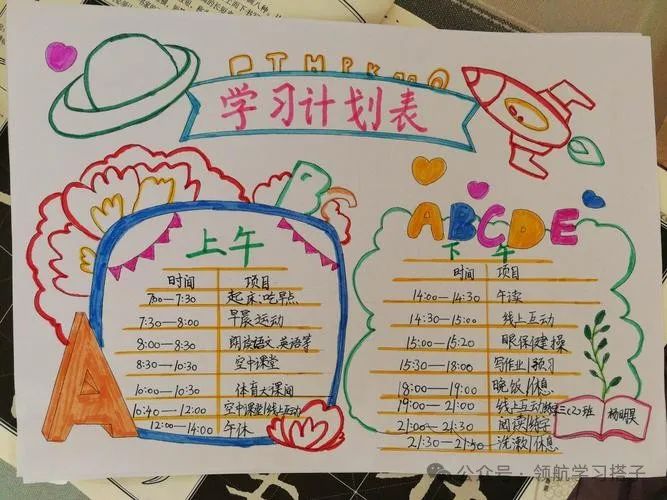 学习计划表
上午
时间 项目
7:00—7:30 起床:吃早点
7:30—8:00 早晨运动
8:00—8:30 朗读语文.英语等
8:30—10:30 空中课堂
10:00—10:30 体育大课间
10:40—12:00 空中课堂|线上互动
12:00—14:00 午休
ABCDE
下午
时间 项目
14:00—14:30 午读
14:30—15:00 线上互动
15:00—15:20 眼保健操
15:30—18:00 写作业|预习
18:00—19:00 晚饭|休息
19:00—21:00 线上互动
21:00—21:30 阅读|练字
21:30—21:50 洗漱|休息
A
B
C
杨明昊
公众号·领航学习搭子